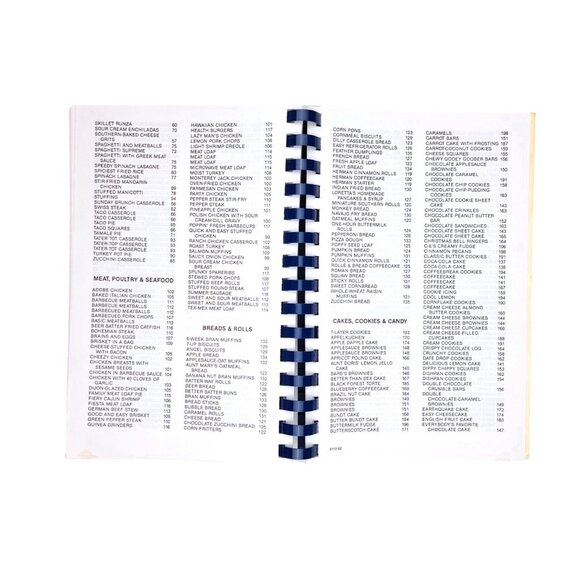 SKILLET RUNZA 60
SOUR CREAM ENCHILADAS 70
SOUTHERN BAKED CHEESE
GRITS 57
SPAGHETTI AND MEATBALLS 75
SPAGHETTI SUPREME 72
SPAGHETTI WITH GREEK MEAT
SAUCE 75
SPEEDY SPINACH LASAGNE 75
SPICIEST FRIED RICE 83
SPINACH LASAGNE 77
STIR-FRIED MANDARIN
CHICKEN 89
STUFFED MANICOTTI 78
STUFFING 94
SUNDAY BRUNCH CASSEROLE 56
SWISS STEAK
TACO CASSEROLE
TACO CASSEROLE
TACO PIE
TACO SQUARES 66
TAMALE PIE
TATER TOT CASSEROLE 93
TATER TOT CASSEROLE
TATER TOT CASSEROLE
TURKEY POT PIE 90
ZUCCHINI CASSEROLE 85
MEAT, POULTRY & SEAFOOD
ADOBE CHICKEN 102
BAKED ITALIAN CHICKEN 106
BARBECUE MEATBALLS 112
BARBECUED MEATBALLS
BARBECUED MEATBALLS
BARBECUED PORK CHOPS 107
BASIC MEATBALLS
BEER BATTER FRIED CATFISH 116
BOHEMIAN STEAK
BRAINS AND EGGS 107
BRISKET IN A BAG 109
CHEESE STUFFED CHICKEN
WITH BACON 105
CHEEZY CHICKEN 102
CHICKEN BREASTS WITH
SESAME SEEDS
CHICKEN IN BARBECUE SAUCE 104
CHICKEN WITH 40 CLOVES OF
GARLIC 103
DIJON-GLAZED CHICKEN 105
FAMILY MEAT LOAF PIE
FIERY CAJUN SHRIMP 116
FIESTA MEAT LOAF
GERMAN BEEF STEW 113
GOOD AND EASY BRISKET 109
GREEN PEPPER STEAK 110
GUINEA GRINDERS 116
HAWAIIAN CHICKEN 101
HEALTH BURGERS 117
LAZY MAN'S CHICKEN 104
LEMON PORK CHOPS 108
LIGHT SHRIMP CREOLE
MEAT LOAF 114
MEAT LOAF 114
MEAT LOAF 115
MICROWAVE MEAT LOAF 114
MOIST TURKEY 108
MONTEREY JACK CHICKEN 100
OVEN-FRIED CHICKEN 101
PARMESAN CHICKEN 103
PARTY CHICKEN 105
PEPPER STEAK STIR-FRY 110
PEPPER STEAK 111
PINEAPPLE CHICKEN
POLISH CHICKEN WITH SOUR
CREAM-DILL GRAVY 100
POPPIN' FRESH BARBECUES 117
QUICK AND EASY STUFFED
CHICKEN 106
RANCH CHICKEN CASSEROLE 102
ROAST TURKEY
SALMON MUFFINS 117
SAUCY ONION CHICKEN
SOUR CREAM CHICKEN
BREAST
SPUNKY SPARERIBS 117
STEWED PORK CHOPS 107
STUFFED BEEF ROLLS
STUFFED ROUND STEAK 107
SUMMER SAUSAGE 115
SWEET AND SOUR MEATBALLS 112
SWEET AND SOUR MEATBALLS
TEX-MEX MEAT LOAF 114
BREADS & ROLLS
6-WEEK BRAN MUFFINS 132
7-UP BISCUITS 130
ANGEL BISCUITS 131
APPLE BREAD 134
APPLESAUCE-OAT MUFFINS 131
AUNT MARY'S OATMEAL
BREAD
BANANA NUT BRAN MUFFINS 132
BATTER-WAY ROLLS
BEER BREAD
BETTER BATTER BUNS
BRAN MUFFINS
BREAD STICKS
BUBBLE BREAD
CARAMEL ROLLS
CHEESE BREAD
CHOCOLATE ZUCCHINI BREAD 135
CORN FRITTERS 122
CORN PONS 123
CORNMEAL BISCUITS 129
DILLY CASSEROLE BREAD 123
EASY REFRIGERATOR ROLLS 126
FEATHER DUMPLINGS
FRENCH BREAD 127
FRESH APPLE LOAF 134
FRUIT BREAD
HERMAN CINNAMON ROLLS 119
HERMAN COFFEECAKE 120
HERMAN STARTER 119
INDIAN FRIED BREAD
LORETTA'S HOMEMADE
PANCAKES & SYRUP 127
MINIATURE SOUTHERN ROLLS 125
MONKEY BREAD 124
NAVAJO FRY BREAD 130
OATMEAL MUFFINS 131
ONE-HOUR BUTTERMILK
ROLLS 124
PEPPERONI BREAD
PIZZA DOUGH 133
POPPY SEED LOAF
PUMPKIN BREAD
PUMPKIN MUFFINS 131
QUICK CINNAMON ROLLS 121
ROLLS & BREAD COFFEECAKE
ROMAN BREAD
SQUAW BREAD
STICKY ROLLS
SWEET CORNBREAD
WHOLE-WHEAT RAISIN
MUFFINS 131
ZUCCHINI BREAD 135
CAKES, COOKIES & CANDY
7-LAYER COOKIES 163
APFELKUCHEN 170
APPLE DAPPLE CAKE 174
APPLESAUCE BROWNIES 151
APPLESAUCE BROWNIES
APRICOT POUND CAKE 166
AUNT BONNIE LEMON JELLO
CAKE
BARB'S BROWNIES 150
BETTER THAN SEX CAKE 176
BLACK FOREST TORTE
BLUEBERRY COFFEECAKE
BRAZIL NUT CAKE
BROWNIES 149
BROWNIES
BROWNIES 151
BUNDT CAKE
BUTTER BUNDT CAKE
BUTTERMILK FUDGE 196
BUTTERSCOTCH CAKE 171
E110-92
CARAMELS 198
CARROT BARS 151
CARROT CAKE WITH FROSTING 187
CARROT-COCONUT COOKIES 159
CHEESE SQUARES
CHEWY GOOEY GOOBER BARS 156
CHOCOLATE APPLESAUCE
BROWNIES 150
CHOCOLATE CARAMEL
COOKIES 191
CHOCOLATE CHIP COOKIES 160
CHOCOLATE CHIP-PUDDING
COOKIES 163
CHOCOLATE COOKIE SHEET
CAKE 143
CHOCOLATE CRINKLES 161
CHOCOLATE PEANUT BUTTER
BAR 152
CHOCOLATE SANDWICHES 163
CHOCOLATE SHEET CAKE 143
CHOCOLATE SHEET CAKE
CHRISTMAS BELL RINGERS 164
CIE'S CREAMY FUDGE 196
CINNAMON PECANS 198
CLASSIC BUTTER COOKIES 191
COCA-COLA CAKE 137
COCA-COLA CAKE 138
COFFEEBREAK COOKIES 194
COFFEECAKE 141
COFFEECAKE 141
COFFEECAKE
COOKIE ICING 159
COOL LEMON 194
CORNFLAKE COOKIES 160
CREAM CHEESE ALMOND
BUTTER COOKIES 160
CREAM CHEESE BROWNIES 157
CREAM CHEESE BROWNIES 144
CREAM CHEESE CUPCAKES 166
CREAM CHEESE FILLED
CUPCAKES 188
CREAM COOKIES 191
CRISPY CHOCOLATE LOG 164
CRUNCHY COOKIES 158
DATE DROP COOKIES 161
DELICIOUS LEMON CAKE 141
DIPPY CHIPPY SQUARES 153
DISHPAN COOKIES 154
DISHPAN COOKIES
DOUBLE CHOCOLATE
CRUMBLE BARS 156
DOUBLE
CHOCOLATE-CARAMEL
BROWNIES 149
EARTHQUAKE CAKE 172
EASY CHEESECAKE
ENGLISH FRUIT CAKE 183
EVERYBODY'S FAVORITE
CHOCOLATE CAKE 147